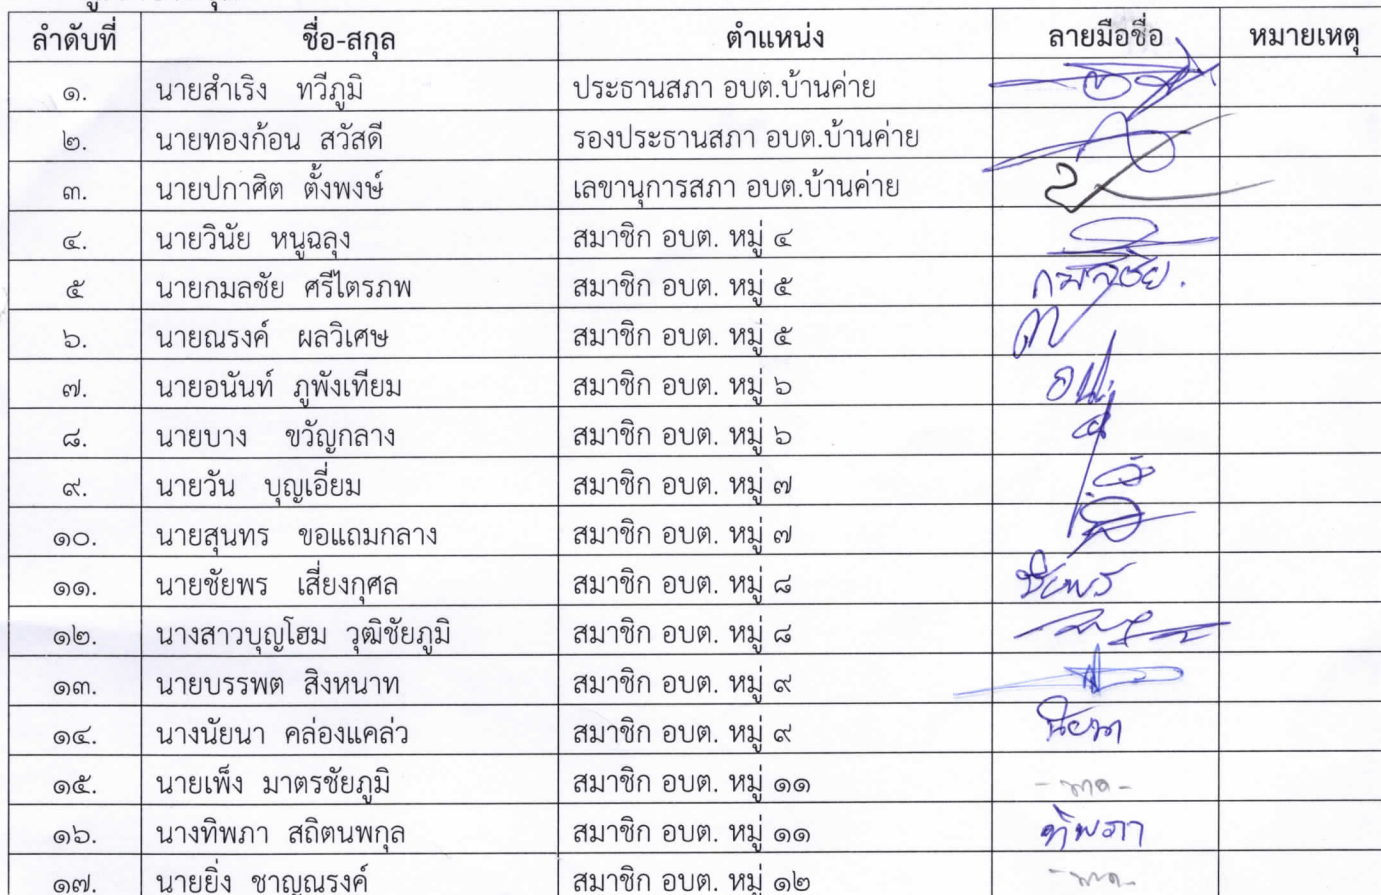 ลำดับที่ ชื่อ-สกุล ตำแหน่ง ลายมือชื่อ หมายเหตุ
๑. นายสำเริง ทวีภูมิ ประธานสภา อบต.บ้านค่าย
๒. นายทองก้อน สวัสดี รองประธานสภา อบต.บ้านค่าย
๓. นายปกาศิต ตั้งพงษ์ เลขานุการสภา อบต.บ้านค่าย
๔. นายวินัย หนูฉลุง สมาชิก อบต. หมู่ ๔
๕ นายกมลชัย ศรีไตรภพ สมาชิก อบต. หมู่ ๕ กมลชัย.
๖. นายณรงค์ ผลวิเศษ สมาชิก อบต. หมู่ ๕
๗. นายอนันท์ ภูพังเทียม สมาชิก อบต. หมู่ ๖
๘. นายบาง ขวัญกลาง สมาชิก อบต. หมู่ ๖
๙. นายวัน บุญเอี่ยม สมาชิก อบต. หมู่ ๗
๑๐. นายสุนทร ขอแถมกลาง สมาชิก อบต. หมู่ ๗
๑๑. นายชัยพร เสี่ยงกุศล สมาชิก อบต. หมู่ ๘ ชัยพร
๑๒. นางสาวบุญโฮม วุฒิชัยภูมิ สมาชิก อบต. หมู่ ๘
๑๓. นายบรรพต สิงหนาท สมาชิก อบต. หมู่ ๙
๑๔. นางนัยนา คล่องแคล่ว สมาชิก อบต. หมู่ ๙ นัยนา
๑๕. นายเพ็ง มาตรชัยภูมิ สมาชิก อบต. หมู่ ๑๑ - ขาด -
๑๖. นางทิพภา สถิตนพกุล สมาชิก อบต. หมู่ ๑๑ ทิพภา
๑๗. นายยิ่ง ชาญณรงค์ สมาชิก อบต. หมู่ ๑๒ - ขาด -